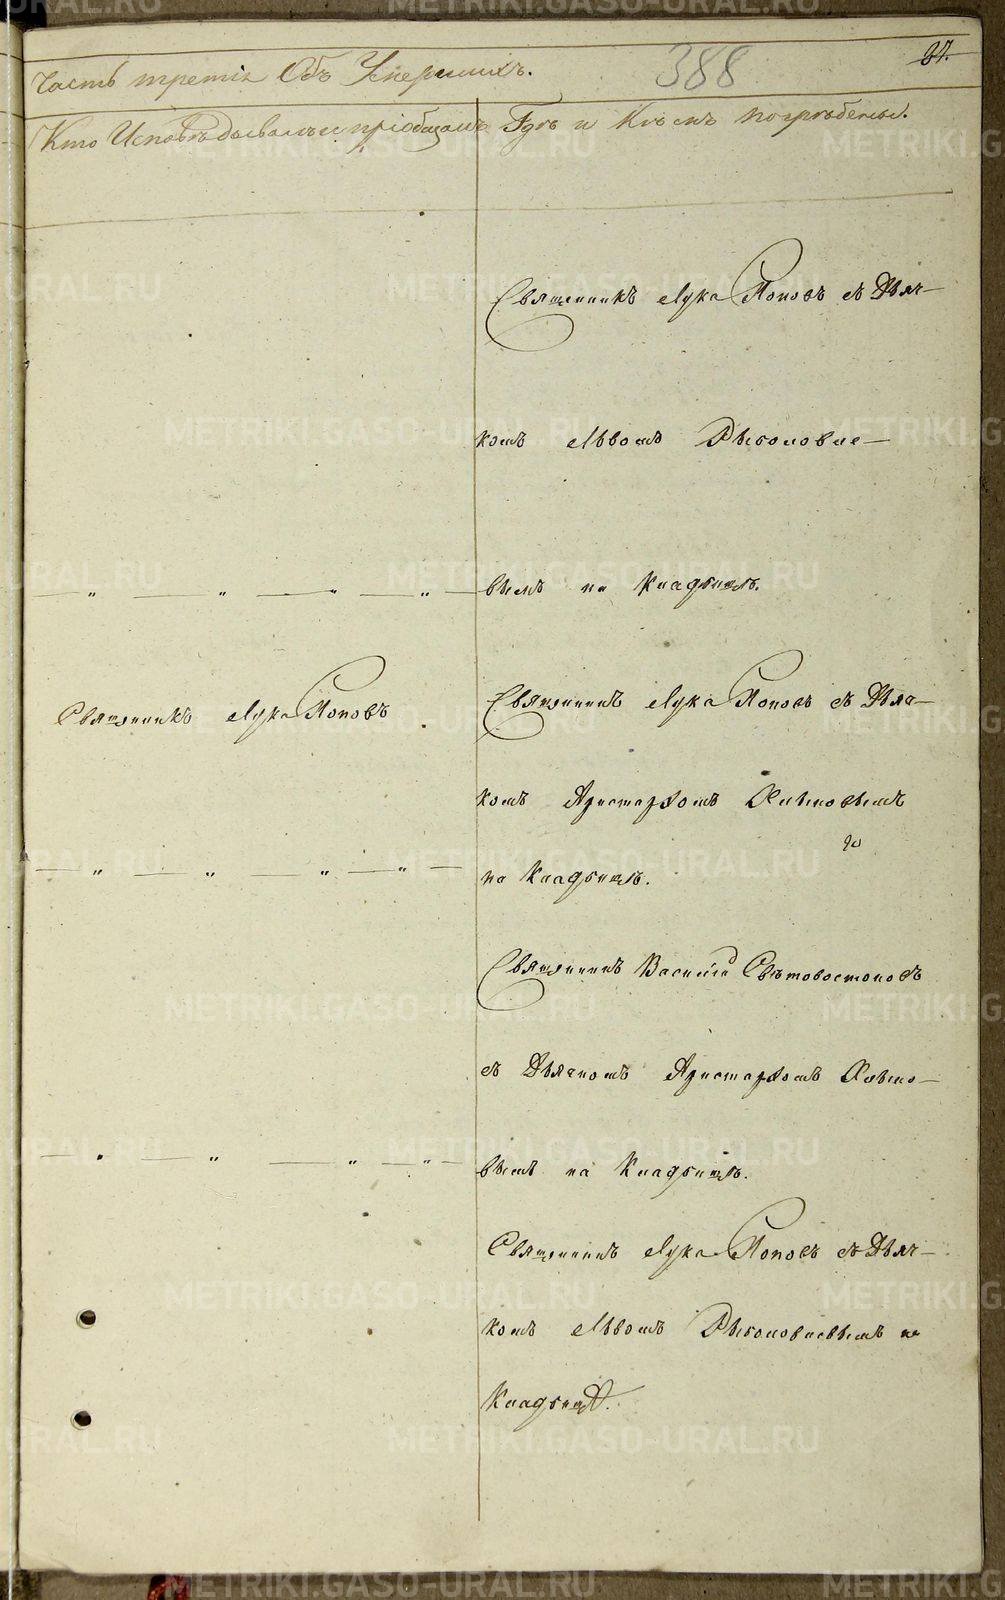 388
27.
Часть третія Объ Умершихъ.
Кто Исповѣдывалъ и пріобщалъ
Гдѣ и Кѣмъ погребены.
Священникъ Лука Поповъ съ Дьяч-
комъ Львомъ Рыболовле-
вымъ на Кладбищѣ.
Священникъ Лука Поповъ
Священникъ Лука Поповъ съ Дьяч-
комъ Аристархомъ
на Кладбищѣ.
Священникъ Василій Свѣтовостоковъ
съ Дьячкомъ Аристархомъ
вымъ на Кладбищѣ.
Священникъ Лука Поповъ съ Дьяч-
комъ Львомъ Рыболовлевымъ на
Кладбищѣ.
METRIKI.GASO-URAL.RU